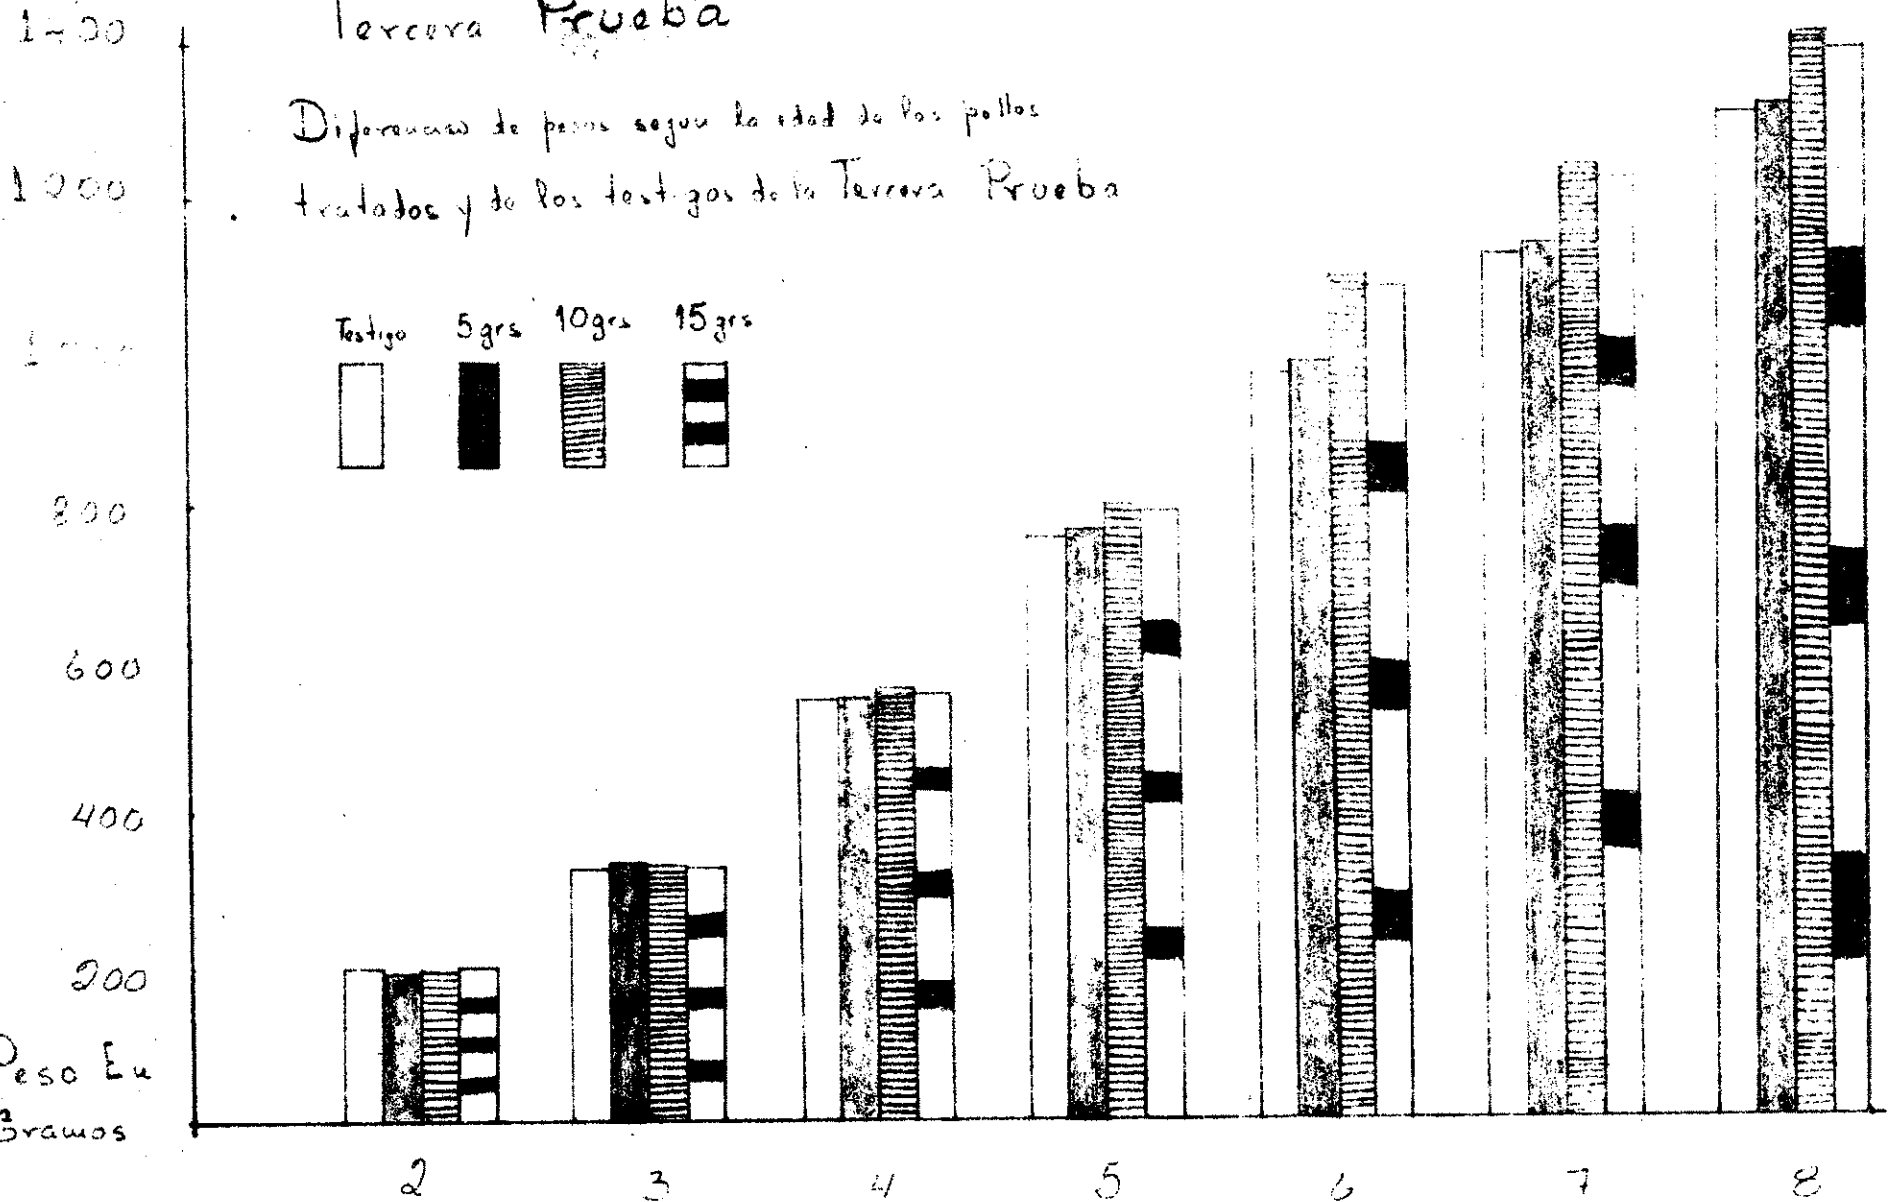 Tercera Prueba
Diferencias de pesos segun la edad de los pollos
tratados y de los testigos de la Tercera Prueba
Testigo 5grs 10grs 15grs
1000
800
600
400
200
Peso En
Gramos
2 3 4 5 6 7 8